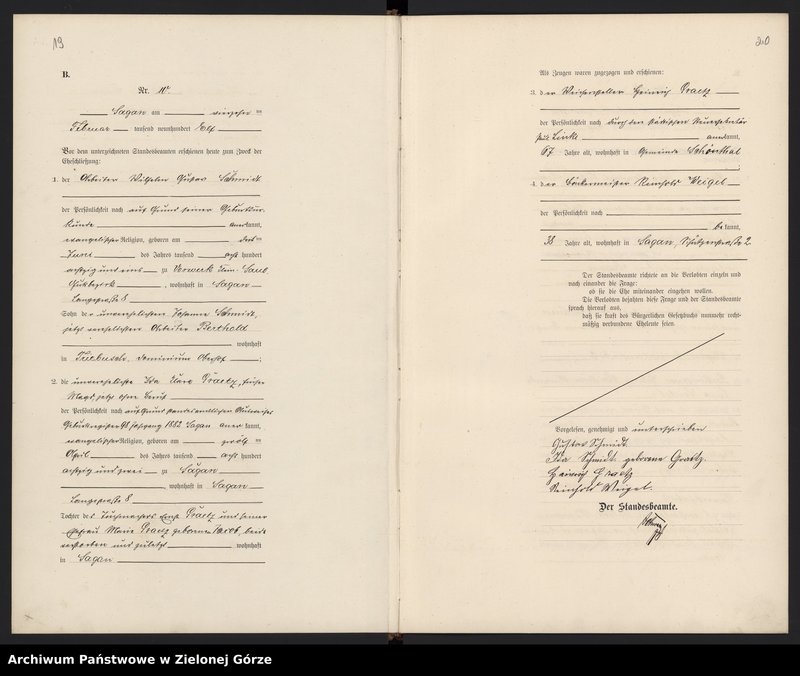 19
B.
Nr. 10.
Sagan am vierzehn =
Februar tausend neunhundert elf
Vor dem unterzeichneten Standesbeamten erschienen heute zum Zweck der
Eheschließung:
1. der Arbeiter Wilhelm Gustav Schmidt
der Persönlichkeit nach auf Grund seiner Geburtsur-
kunde anerkannt,
evangelischer Religion, geboren am
Juni des Jahres tausend acht hundert
achtzig und eins zu Vorwerk
Gutsbezirk, wohnhaft in Sagan
Langestraße 8
Sohn der unverehelichten Johanne Schmidt,
jetzt verehelichten Arbeiter Berthold
wohnhaft
in Dominium
2. die unverehelichte Ida Clara Praetz, früher
Magd, jetzt ohne Beruf
der Persönlichkeit nach auf Grund standesamtlichen
Geburtsregister 98 Jahrgang 1882 Sagan anerkannt,
evangelischer Religion, geboren am zwölf =
April des Jahres tausend acht hundert
achtzig und zwei zu Sagan
, wohnhaft in Sagan
Langestraße 8
Tochter des Tuchmachers Ernst Praetz und seiner
Ehefrau Marie Praetz geborenen Jacob, beide
verstorben und zuletzt wohnhaft
in Sagan
20
Als Zeugen waren zugezogen und erschienen:
3. der Weichensteller Heinrich Praetz
der Persönlichkeit nach durch den städtischen
Linke anerkannt,
67 Jahre alt, wohnhaft in Gemeinde Schönthal
4. der Bäckermeister Reinhold Weigel
der Persönlichkeit nach
be kannt,
38 Jahre alt, wohnhaft in Sagan, Schützenstraße 2
Der Standesbeamte richtete an die Verlobten einzeln und
nach einander die Frage:
ob sie die Ehe miteinander eingehen wollen.
Die Verlobten bejahten diese Frage und der Standesbeamte
sprach hierauf aus,
daß sie kraft des Bürgerlichen Gesetzbuchs nunmehr recht-
mäßig verbundene Eheleute seien.
Vorgelesen, genehmigt und unterschrieben
Gustav Schmidt.
Ida Schmidt geborene Praetz.
Heinrich Praetz
Reinhold Weigel.
Der Standesbeamte.
Archiwum Państwowe w Zielonej Górze